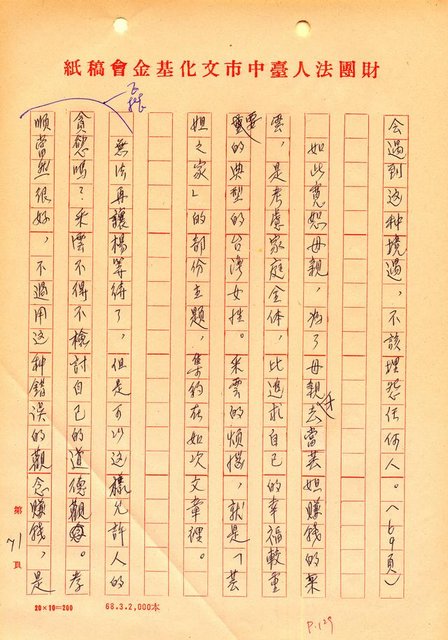 財團法人臺中市文化基金會稿紙
会遇到这种境遇，不該埋怨任何人。（69頁）
如此寬恕母親，為了母親去當芸妲賺錢的采
雲，是考慮家庭全体，比追求自己的幸福較重
要的典型的台湾女性。采雲的煩惱，就是「芸
妲之家」的部份主題，集約在如次文章裡。
無法再讓楊等待了，但是可以这樣允許人的
貪慾嗎？采雲不得不檢討自己的道德觀。孝
順當然很好，不過用这种錯误的觀念賺錢，是
第71頁
20×10=200
68.3.2,000本
P.129